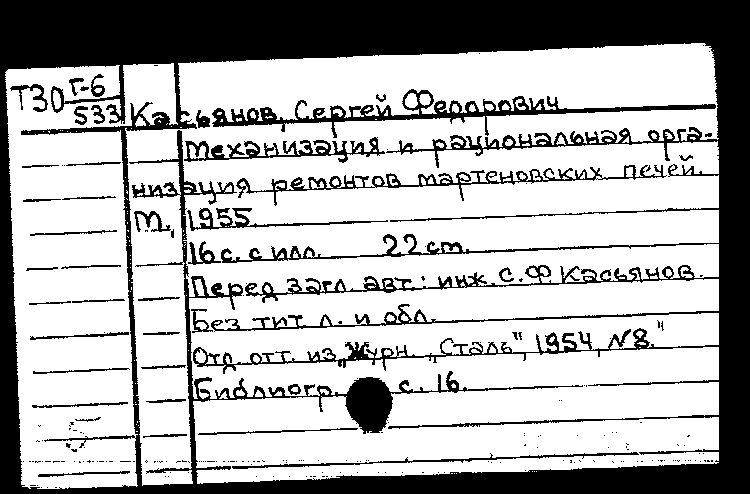 Т30 Г-6
533 Касьянов, Сергей Федорович
Механизация и рациональная орга-
низация ремонтов мартеновских печей.
М., 1955.
16 с. с илл. 22 см.
Перед загл. авт.: инж. С.Ф. Касьянов.
Без тит. л. и обл.
Отд. отт. из „журн. „Сталь", 1954, № 8."
Библиогр. с. 16.
5